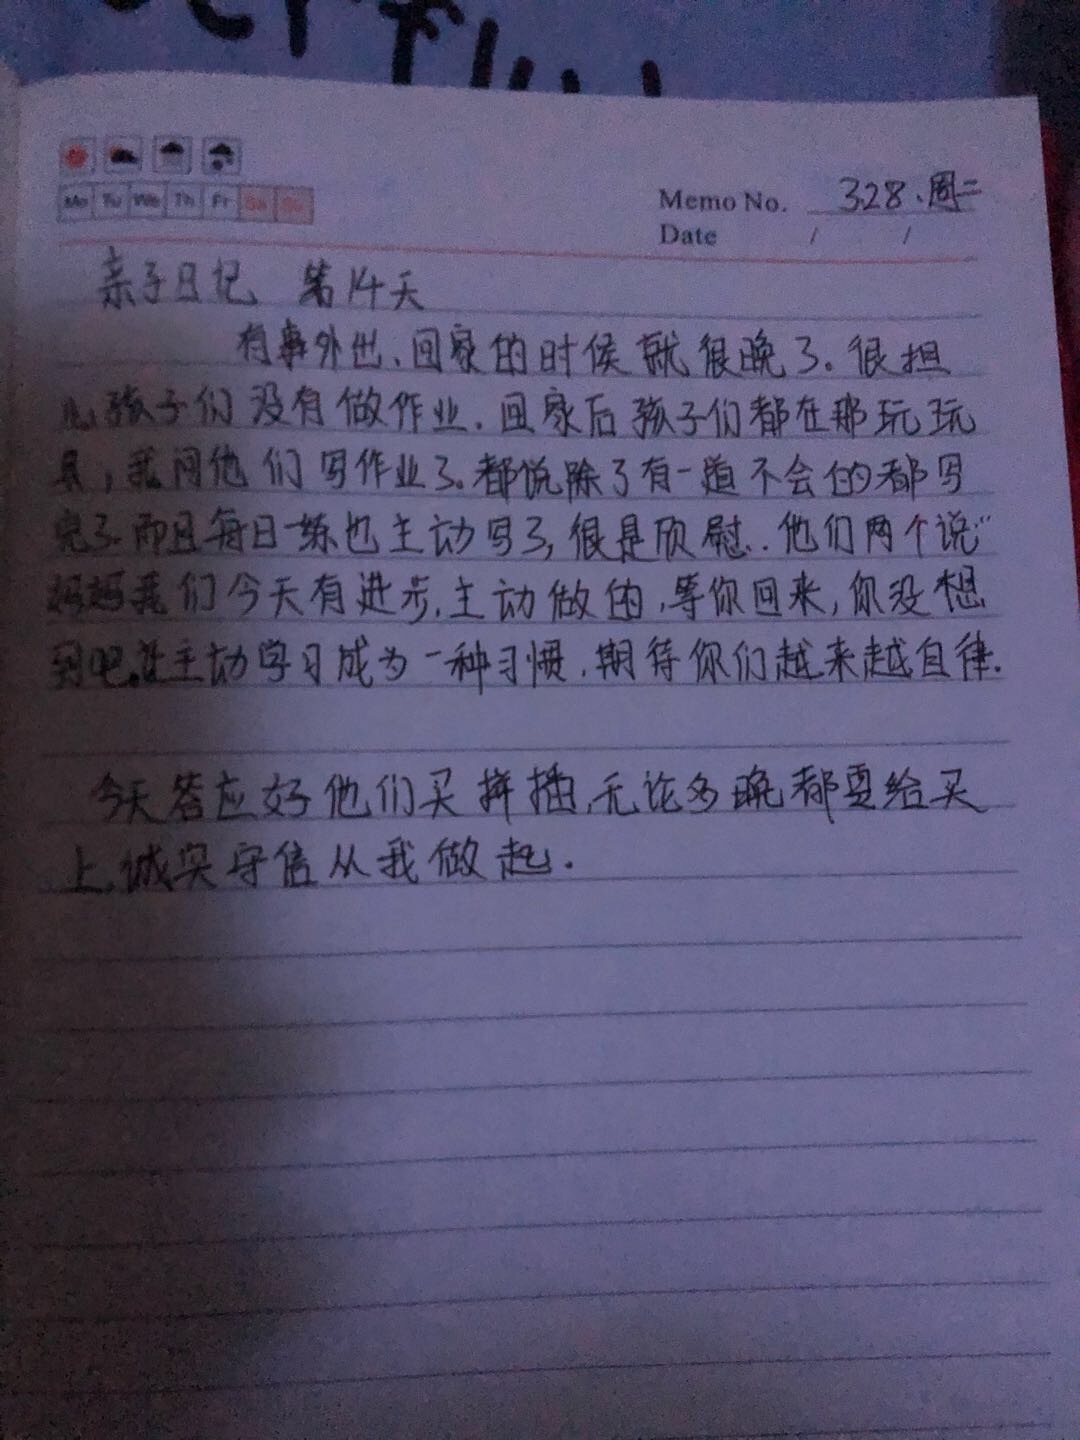 Mo Tu We Th Fr Sa Su
Memo No. 3.28.周二
Date / /
亲子日记 第14天
有事外出、回家的时候就很晚了。很担
心孩子们没有做作业.回家后孩子们都在那玩玩
具,我问他们写作业了。都说除了有一道不会的都写
完了而且每日一练也主动写了,很是欣慰.他们两个说"
妈妈我们今天有进步,主动做的,等你回来,你没想
到吧。让主动学习成为一种习惯,期待你们越来越自律.
今天答应好他们买拼插,无论多晚都要给买
上,诚实守信从我做起.